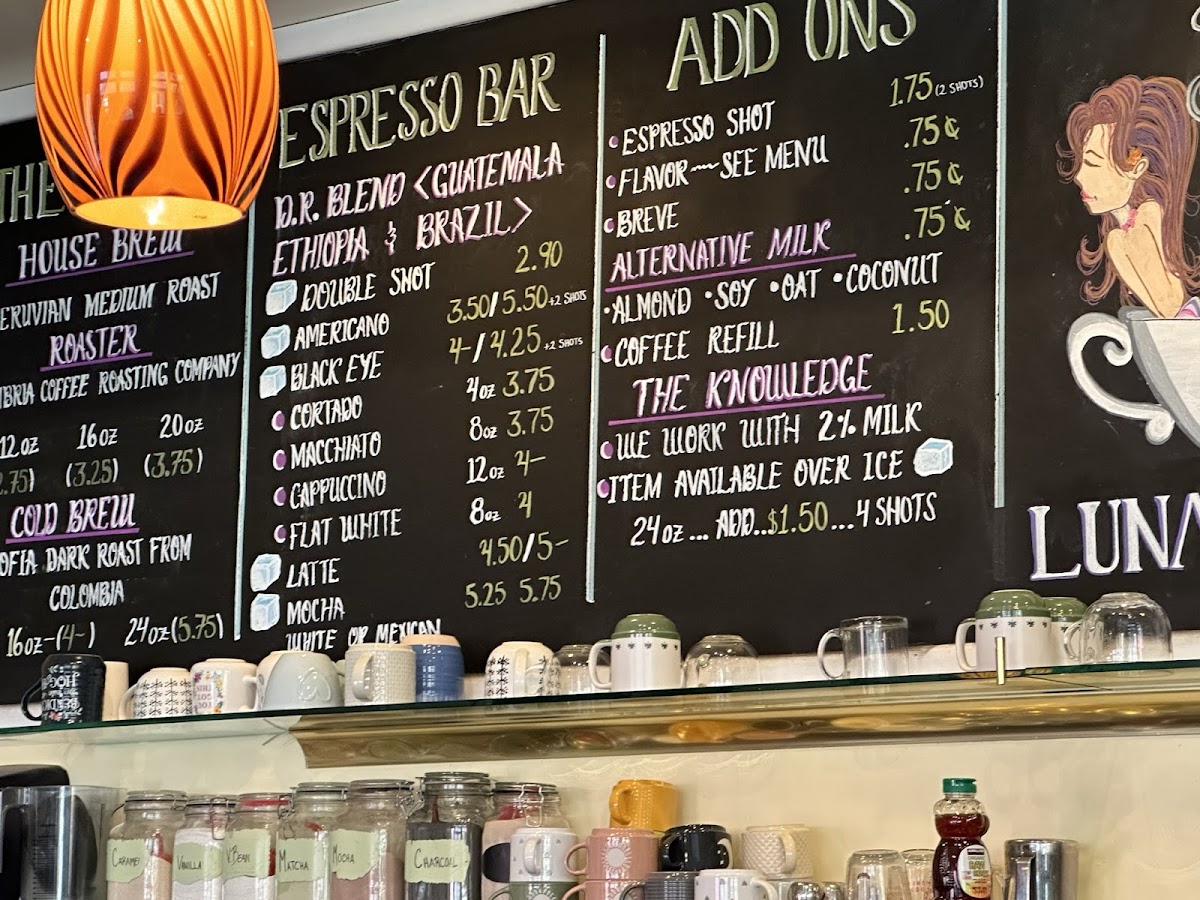 THE
HOUSE BREW
ERUVIAN MEDIUM ROAST
ROASTER
MBRIA COFFEE ROASTING COMPANY
12oz 16oz 20oz
2.75) (3.25) (3.75)
COLD BREW
OFIA DARK ROAST FROM
COLOMBIA
16oz-(4-) 24oz(5.75)
ESPRESSO BAR
D.R. BLEND <GUATEMALA
ETHIOPIA & BRAZIL>
DOUBLE SHOT 2.90
AMERICANO 3.50/5.50 +2 SHOTS
BLACK EYE 4-/4.25 +2 SHOTS
CORTADO 4oz 3.75
MACCHIATO 8oz 3.75
CAPPUCCINO 12oz 4-
FLAT WHITE 8oz 4
LATTE 4.50/5-
MOCHA 5.25 5.75
WHITE OR MEXICAN
ADD ONS
ESPRESSO SHOT 1.75 (2 SHOTS)
FLAVOR~SEE MENU .75¢
BREVE .75¢
ALTERNATIVE MILK .75¢
•ALMOND •SOY •OAT •COCONUT
COFFEE REFILL 1.50
THE KNOWLEDGE
WE WORK WITH 2% MILK
ITEM AVAILABLE OVER ICE
24oz... ADD..$1.50...4 SHOTS
LUNA
CARAMEL
VANILLA
V.BEAN
MATCHA
MOCHA
CHARCOAL